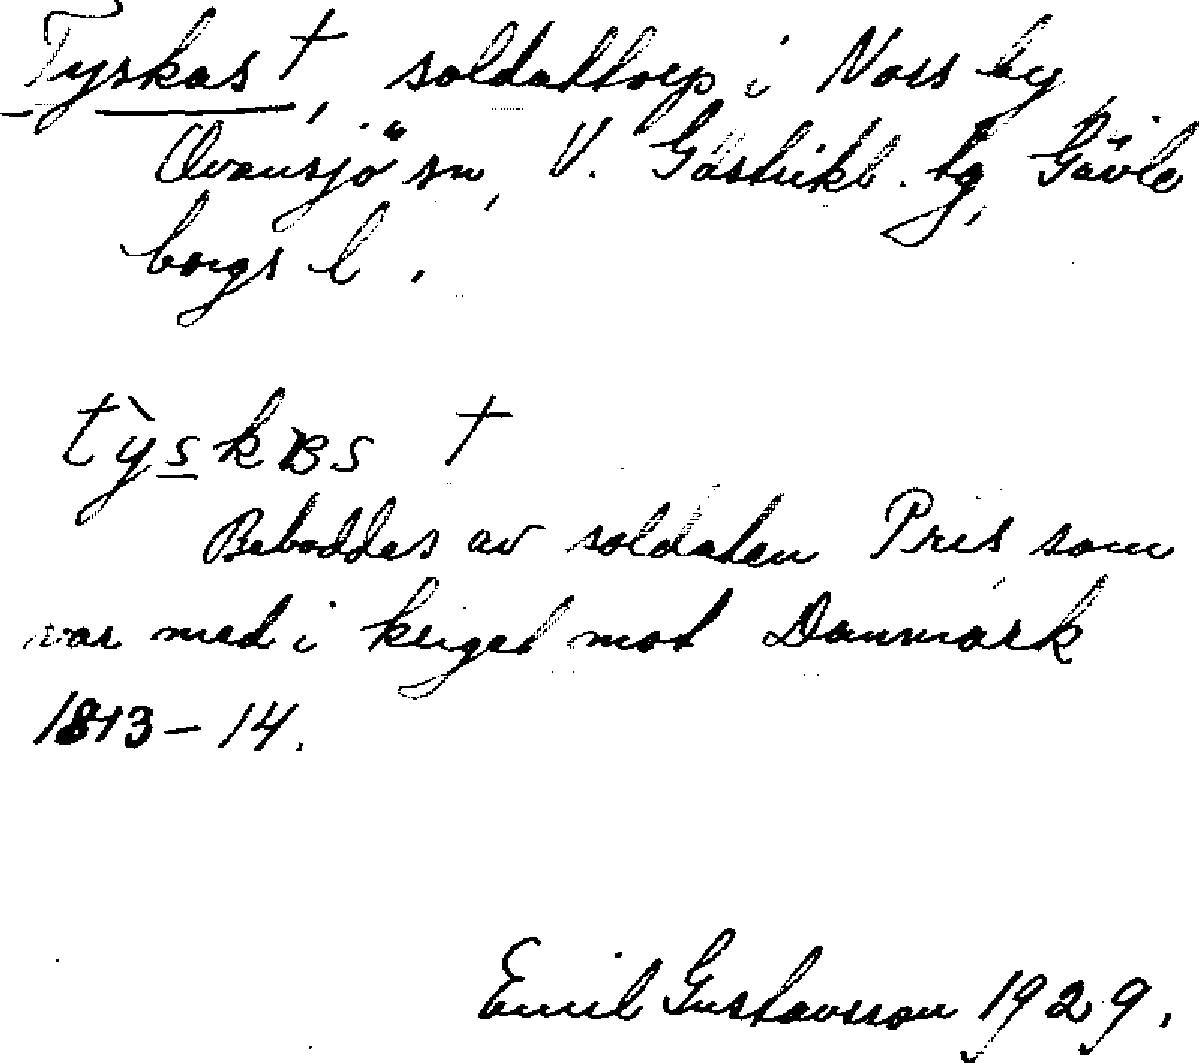 Tyskas †, soldattorp i Nors by
Ovansjö sn, V. Gästrikl. tg, Gävle
borgs l.
tỳskɐs †
Beboddes av soldaten Pris som
var med i kriget mot Danmark
1813–14.
Emil Gustavsson 1929.